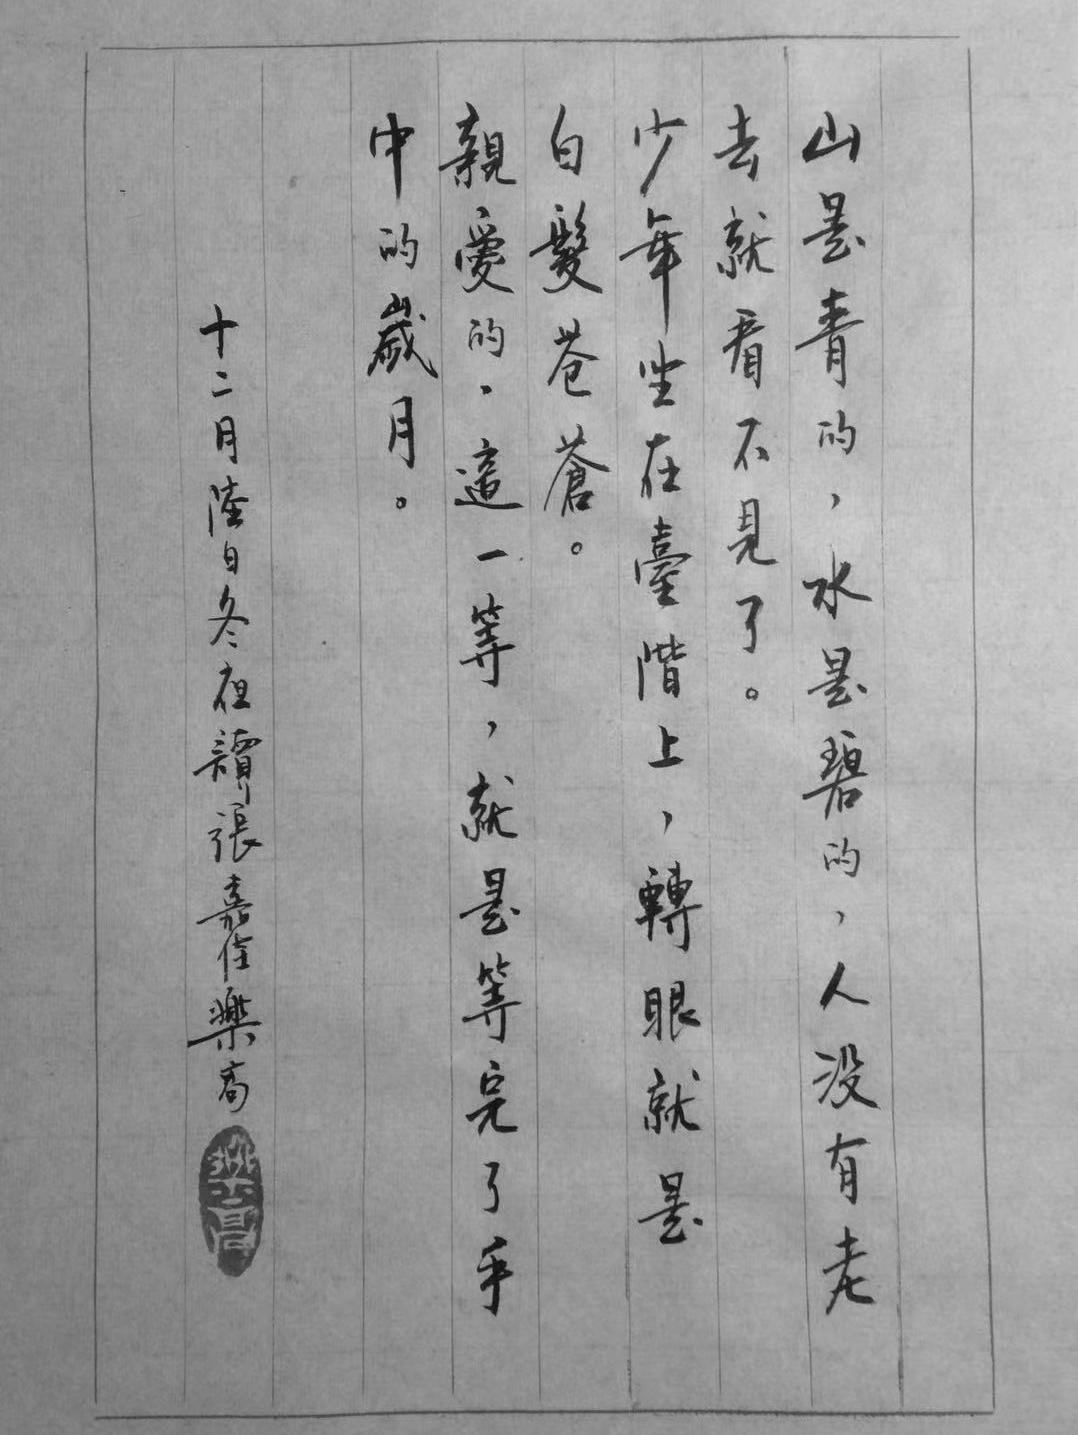 山是青的，水是碧的，人没有老
去就看不見了。
少年坐在臺階上，轉眼就是
白髮苍蒼。
親愛的，這一等，就是等完了手
中的歲月。
十二月陸日冬夜讀張嘉佳樂高
樂高